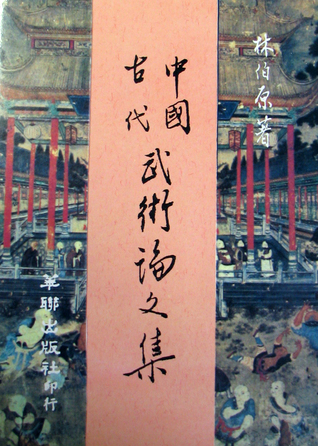 林伯原著
中國
古代
武術論文集
華聯出版社印行